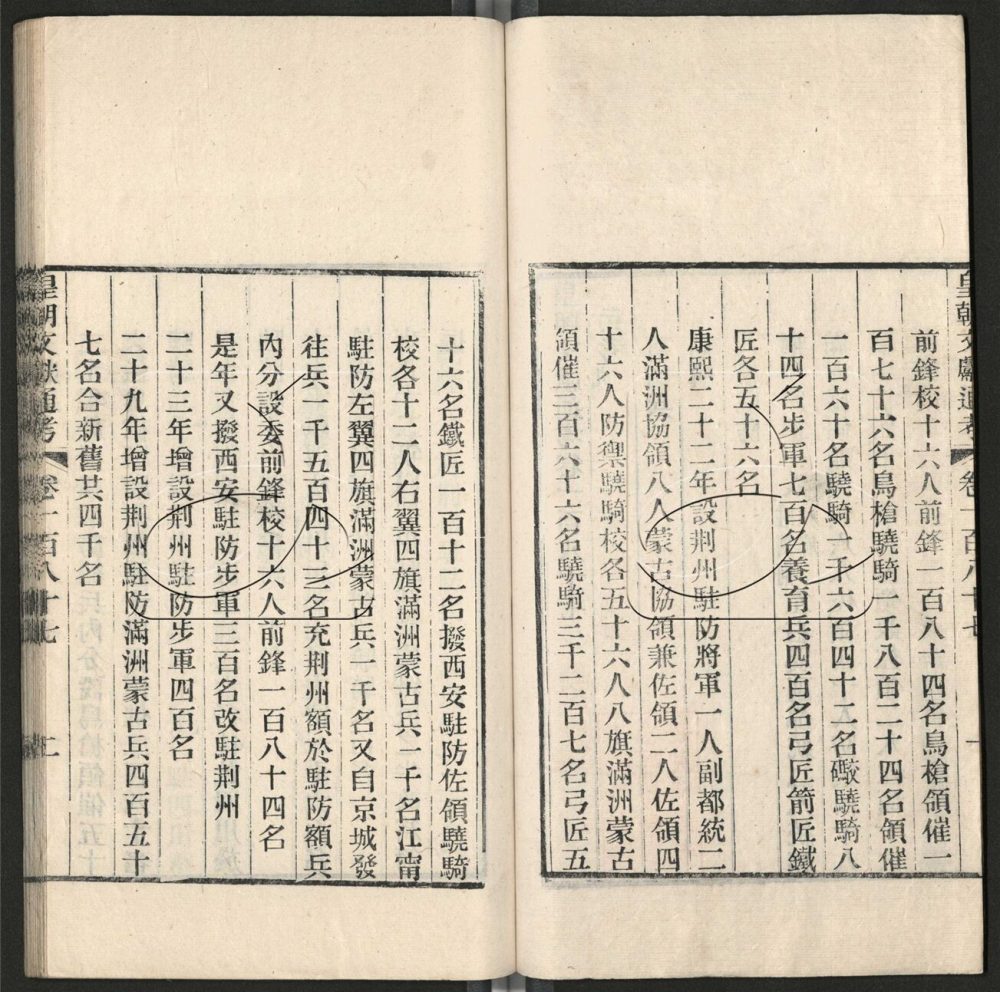 皇朝文獻通考 卷一百八十七
前鋒校十六人前鋒一百八十四名鳥槍領催一
百七十六名鳥槍驍騎一千八百二十四名領催
一百六十名驍騎一千六百四十二名礮驍騎八
十四名步軍七百名養育兵四百名弓匠箭匠鐵
匠各五十六名
康熙二十二年設荆州駐防將軍一人副都統二
人滿洲協領八人蒙古協領兼佐領二人佐領四
十六人防禦驍騎校各五十六人八旗滿洲蒙古
領催三百六十六名驍騎三千二百七名弓匠五
十六名鐵匠一百十二名撥西安駐防佐領驍騎
校各十二人右翼四旗滿洲蒙古兵一千名江甯
駐防左翼四旗滿洲蒙古兵一千名又自京城發
往兵一千五百四十三名充荆州額於駐防額兵
內分設委前鋒校十六人前鋒一百八十四名
是年又撥西安駐防步軍三百名改駐荆州
二十三年增設荆州駐防步軍四百名
二十九年增設荆州駐防滿洲蒙古兵四百五十
七名合新舊共四千名
皇朝文獻通考 卷一百八十七